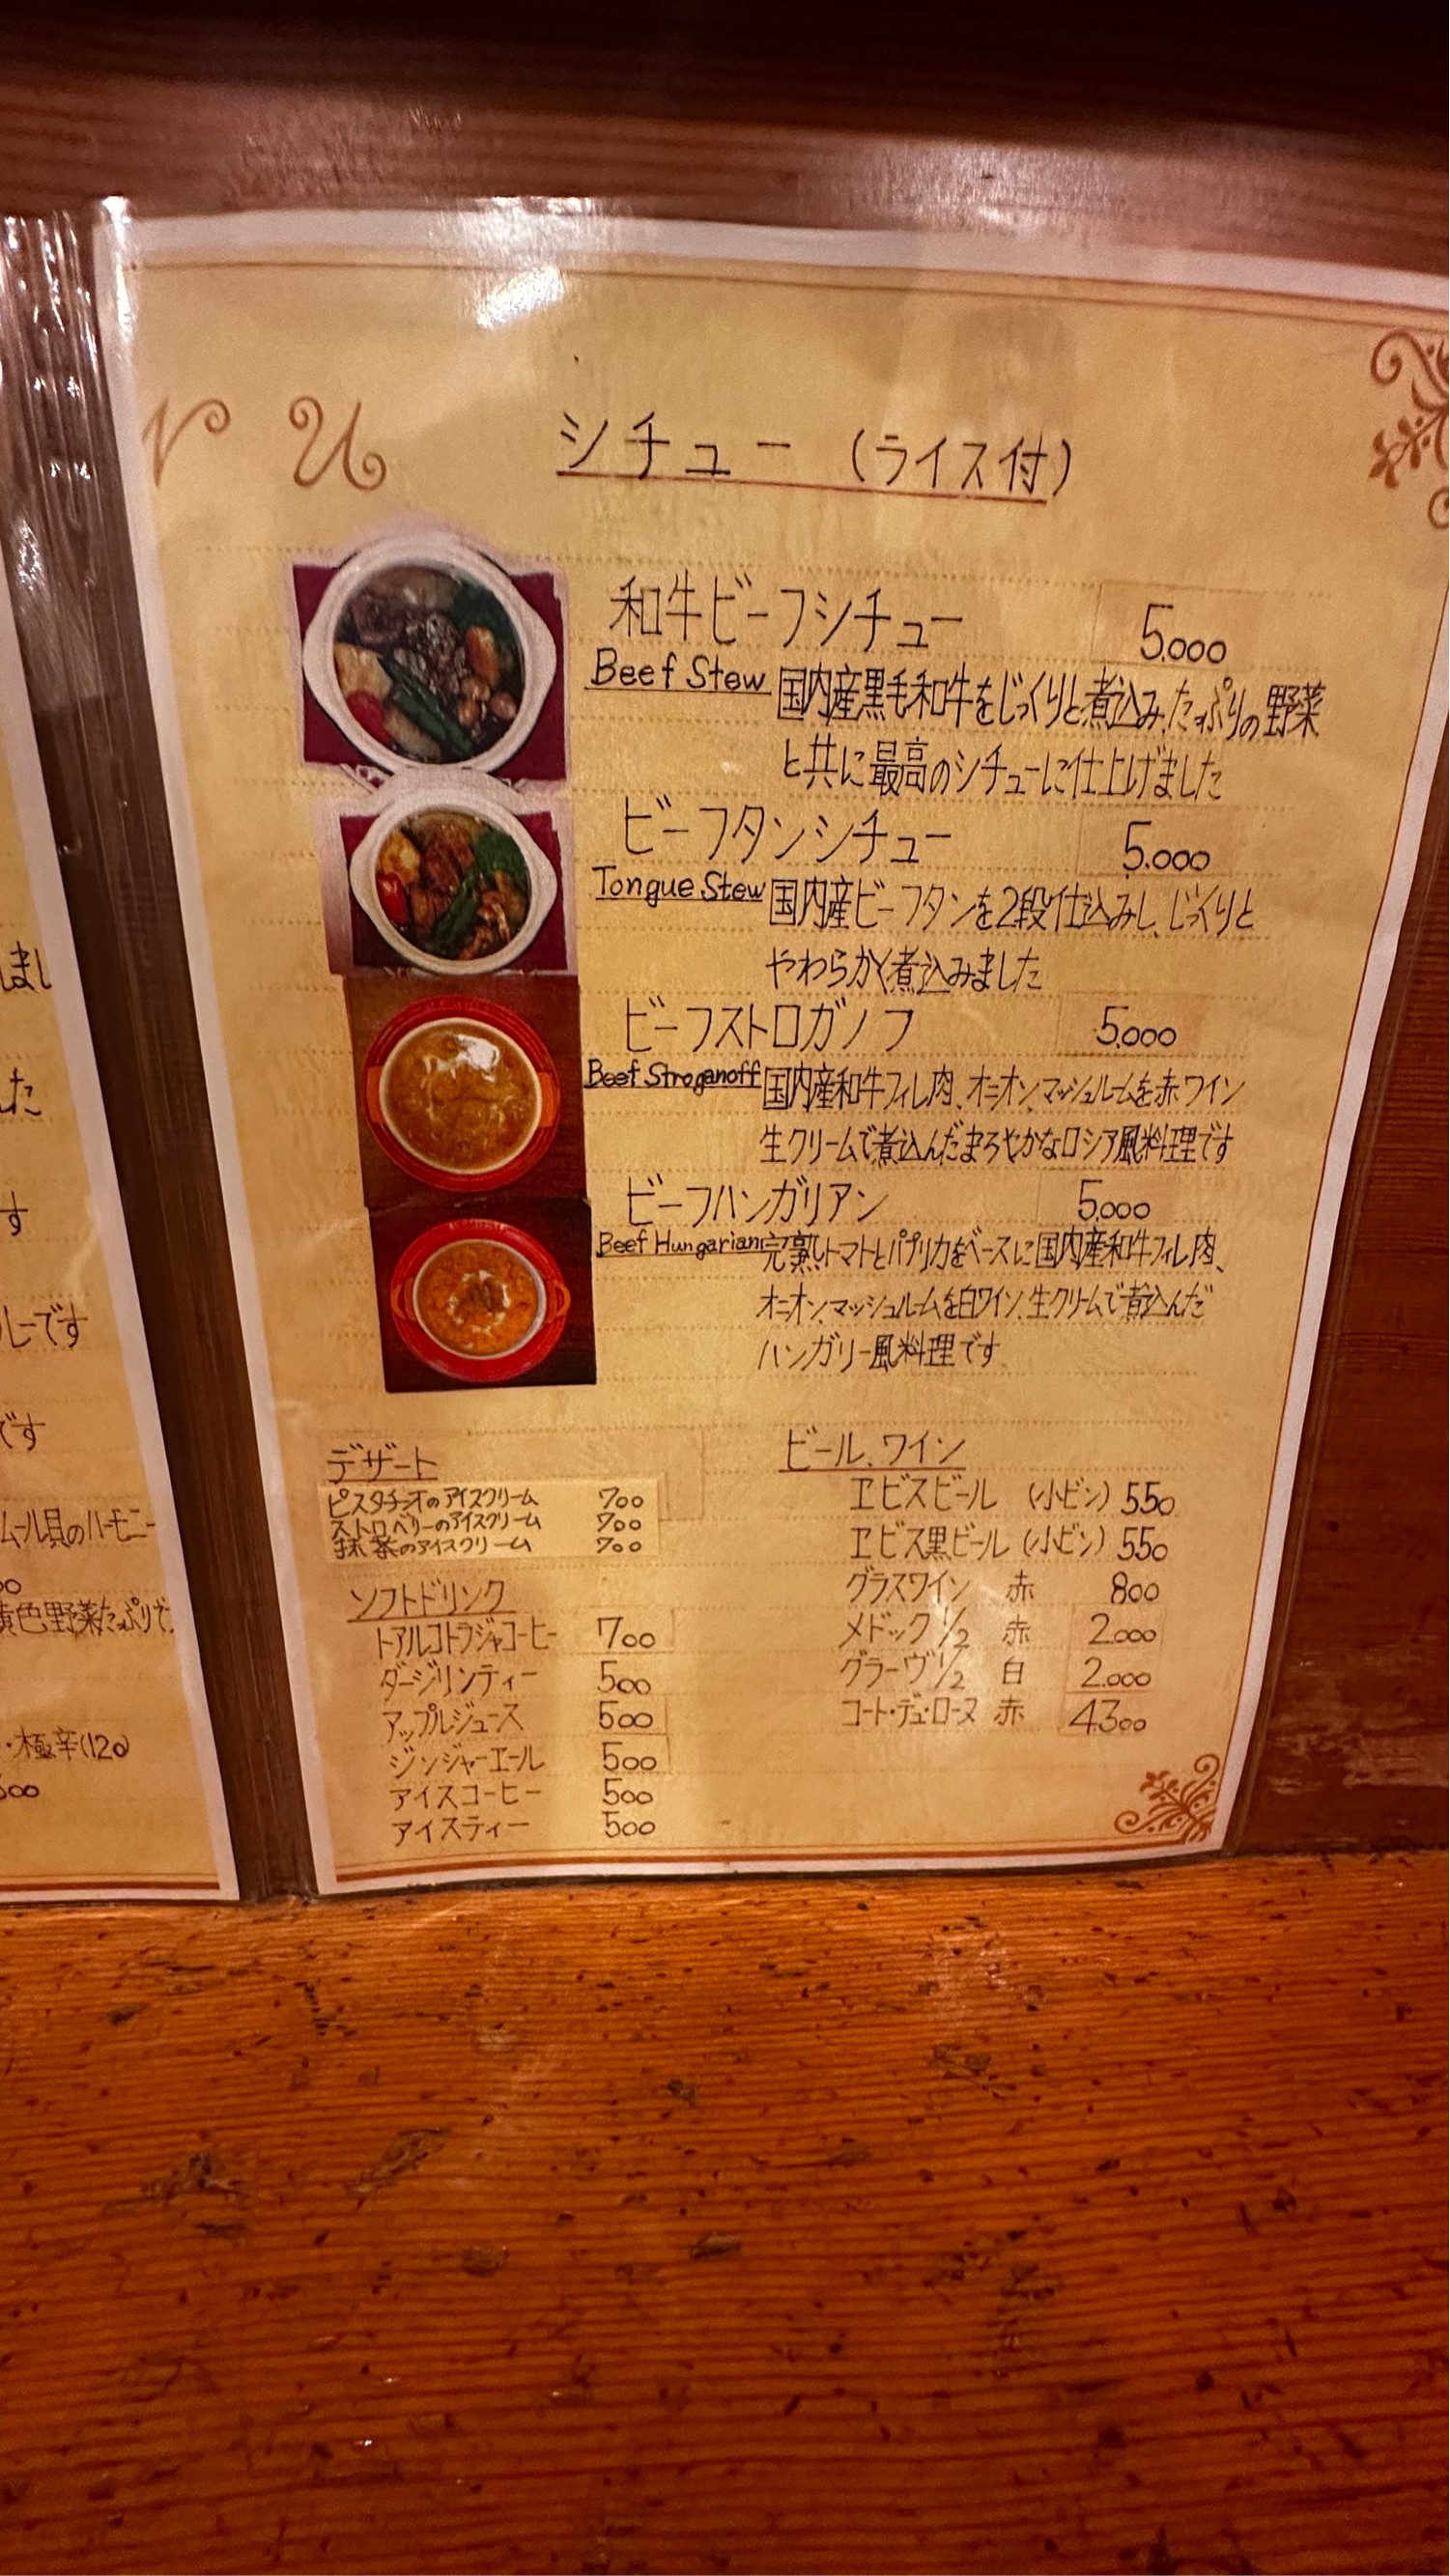 しまし
た
す
レーです
です
ムール貝のハーモニー
00
黄色野菜たっぷりで
・極辛(120)
500
シチュー (ライス付)
和牛ビーフシチュー 5.000
Beef Stew 国内産黒毛和牛をじっくりと煮込み、たっぷりの野菜
と共に最高のシチューに仕上げました
ビーフタンシチュー 5.000
Tongue Stew 国内産ビーフタンを2段仕込みし、じっくりと
やわらかく煮込みました
ビーフストロガノフ 5.000
Beef Stroganoff 国内産和牛フィレ肉、オニオン、マッシュルームを赤ワイン
生クリームで煮込んだまろやかなロシア風料理です
ビーフハンガリアン 5.000
Beef Hungarian 完熟トマトとパプリカをベースに国内産和牛フィレ肉、
オニオン、マッシュルームを白ワイン、生クリームで煮込んだ
ハンガリー風料理です
デザート
ピスタチオのアイスクリーム 700
ストロベリーのアイスクリーム 700
抹茶のアイスクリーム 700
ソフトドリンク
トアルコトラジャコーヒー 700
ダージリンティー 500
アップルジュース 500
ジンジャーエール 500
アイスコーヒー 500
アイスティー 500
ビール、ワイン
ヱビスビール (小ビン) 550
ヱビス黒ビール (小ビン) 550
グラスワイン 赤 800
メドック 1/2 赤 2.000
グラーヴ 1/2 白 2.000
コート・デュ・ローヌ 赤 4300